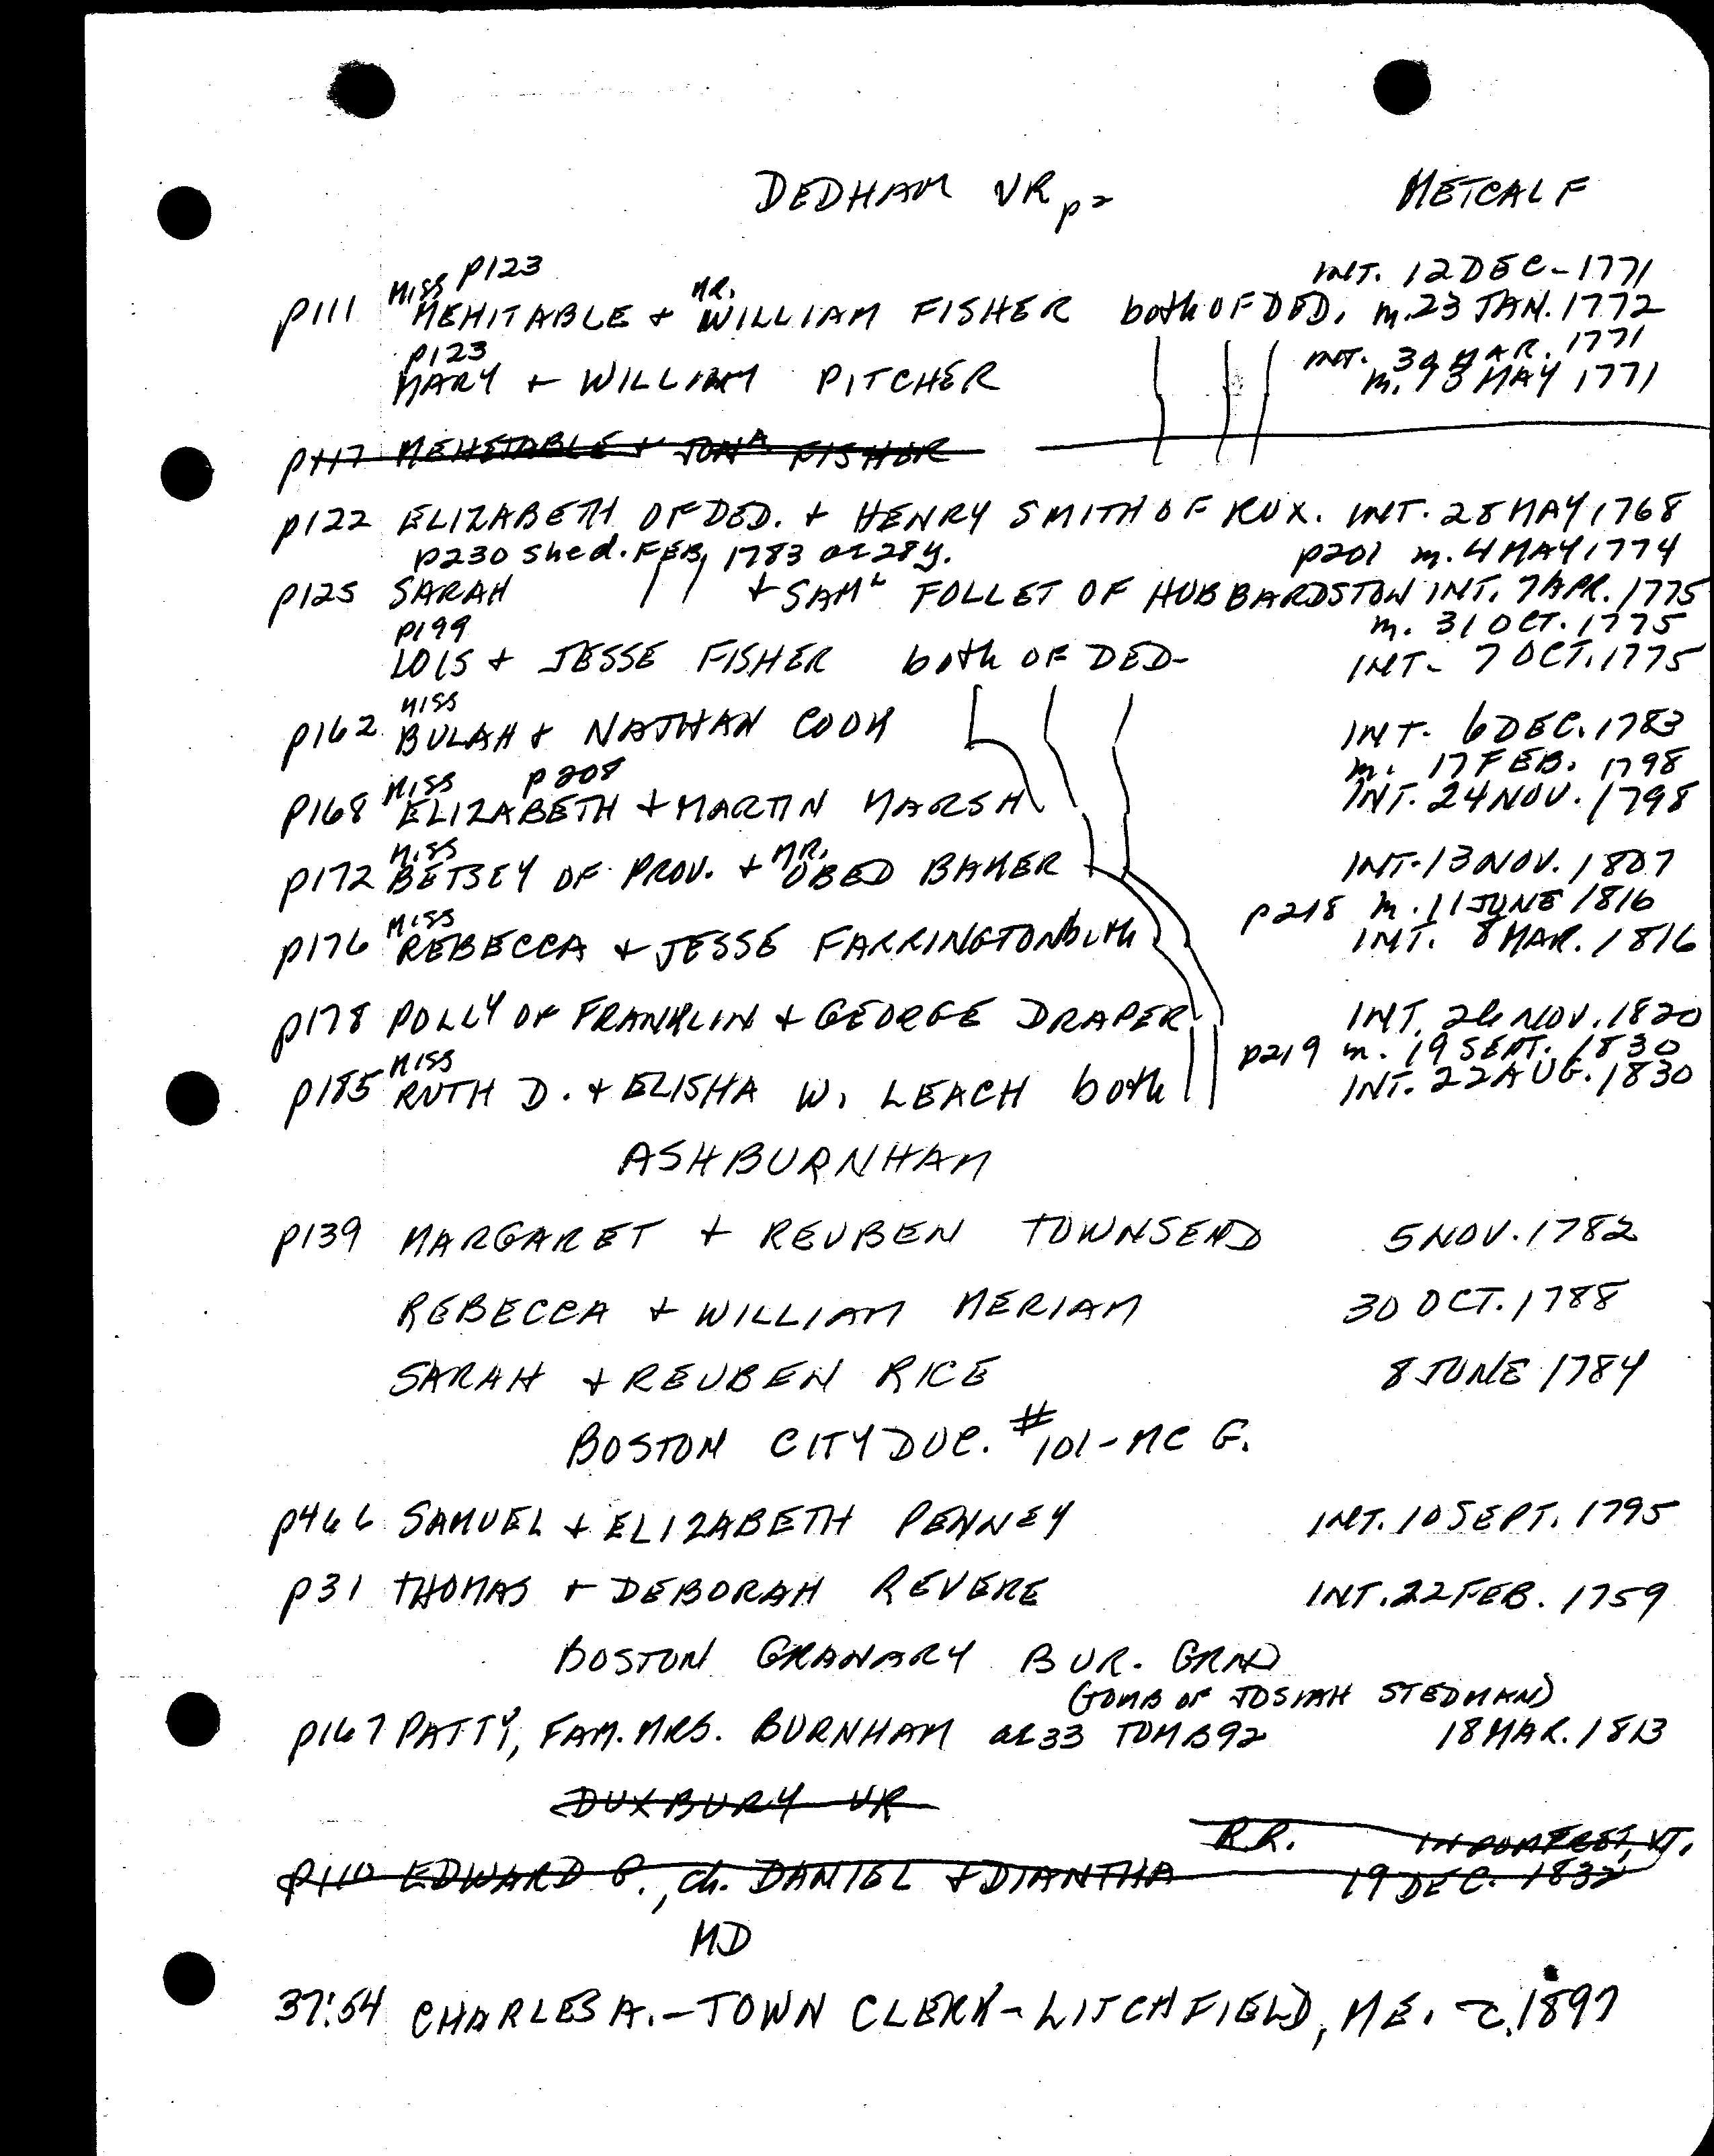 DEDHAM VR p2 METCALF
p123 INT. 12 DEC. 1771
p111 MISS MEHITABLE + MR. WILLIAM FISHER both OF DED. m. 23 JAN. 1772
p123 INT. 30 MAR. 1771
MARY + WILLIAM PITCHER m. 13 MAY 1771
p117 MEHETABLE + JONA FISHER
p122 ELIZABETH OF DED. + HENRY SMITH OF ROX. INT. 28 MAY 1768
p230 She d. FEB, 1783 ae 28y. p201 m. 4 MAY 1774
p125 SARAH " + SAML FOLLET OF HUBBARDSTON INT. 7 APR. 1775
p199 m. 31 OCT. 1775
LOIS + JESSE FISHER both OF DED- INT- 7 OCT. 1775
p162 MISS BULAH + NATHAN COOK INT- 6 DEC. 1783
p208 m. 17 FEB. 1798
p168 MISS ELIZABETH + MARTIN MARSH INT. 24 NOV. 1798
p172 MISS BETSEY OF PROV. + MR. OBED BAKER INT- 13 NOV. 1807
p218 m. 11 JUNE 1816
p176 MISS REBECCA + JESSE FARRINGTON both INT. 8 MAR. 1816
p178 POLLY OF FRANKLIN + GEORGE DRAPER INT. 26 NOV. 1820
p219 m. 19 SEPT. 1830
p185 MISS RUTH D. + ELISHA W. LEACH both INT. 22 AUG. 1830
ASHBURNHAM
p139 MARGARET + REUBEN TOWNSEND 5 NOV. 1782
REBECCA + WILLIAM MERIAM 30 OCT. 1788
SARAH + REUBEN RICE 8 JUNE 1784
BOSTON CITY DOC. #101 - MC G.
p466 SAMUEL + ELIZABETH PENNEY INT. 10 SEPT. 1795
p31 THOMAS + DEBORAH REVERE INT. 22 FEB. 1759
BOSTON GRANARY BUR. GRND
(TOMB OF JOSIAH STEDMAN)
p167 PATTY, FAM. MRS. BURNHAM ae 33 TOMB 92 18 MAR. 1813
DUXBURY VR
R.R. IN POMFRET, VT.
p110 EDWARD P., ch. DANIEL + DIANTHA 19 DEC. 1832
MD
37:54 CHARLES A. - TOWN CLERK - LITCHFIELD, ME. - c. 1897